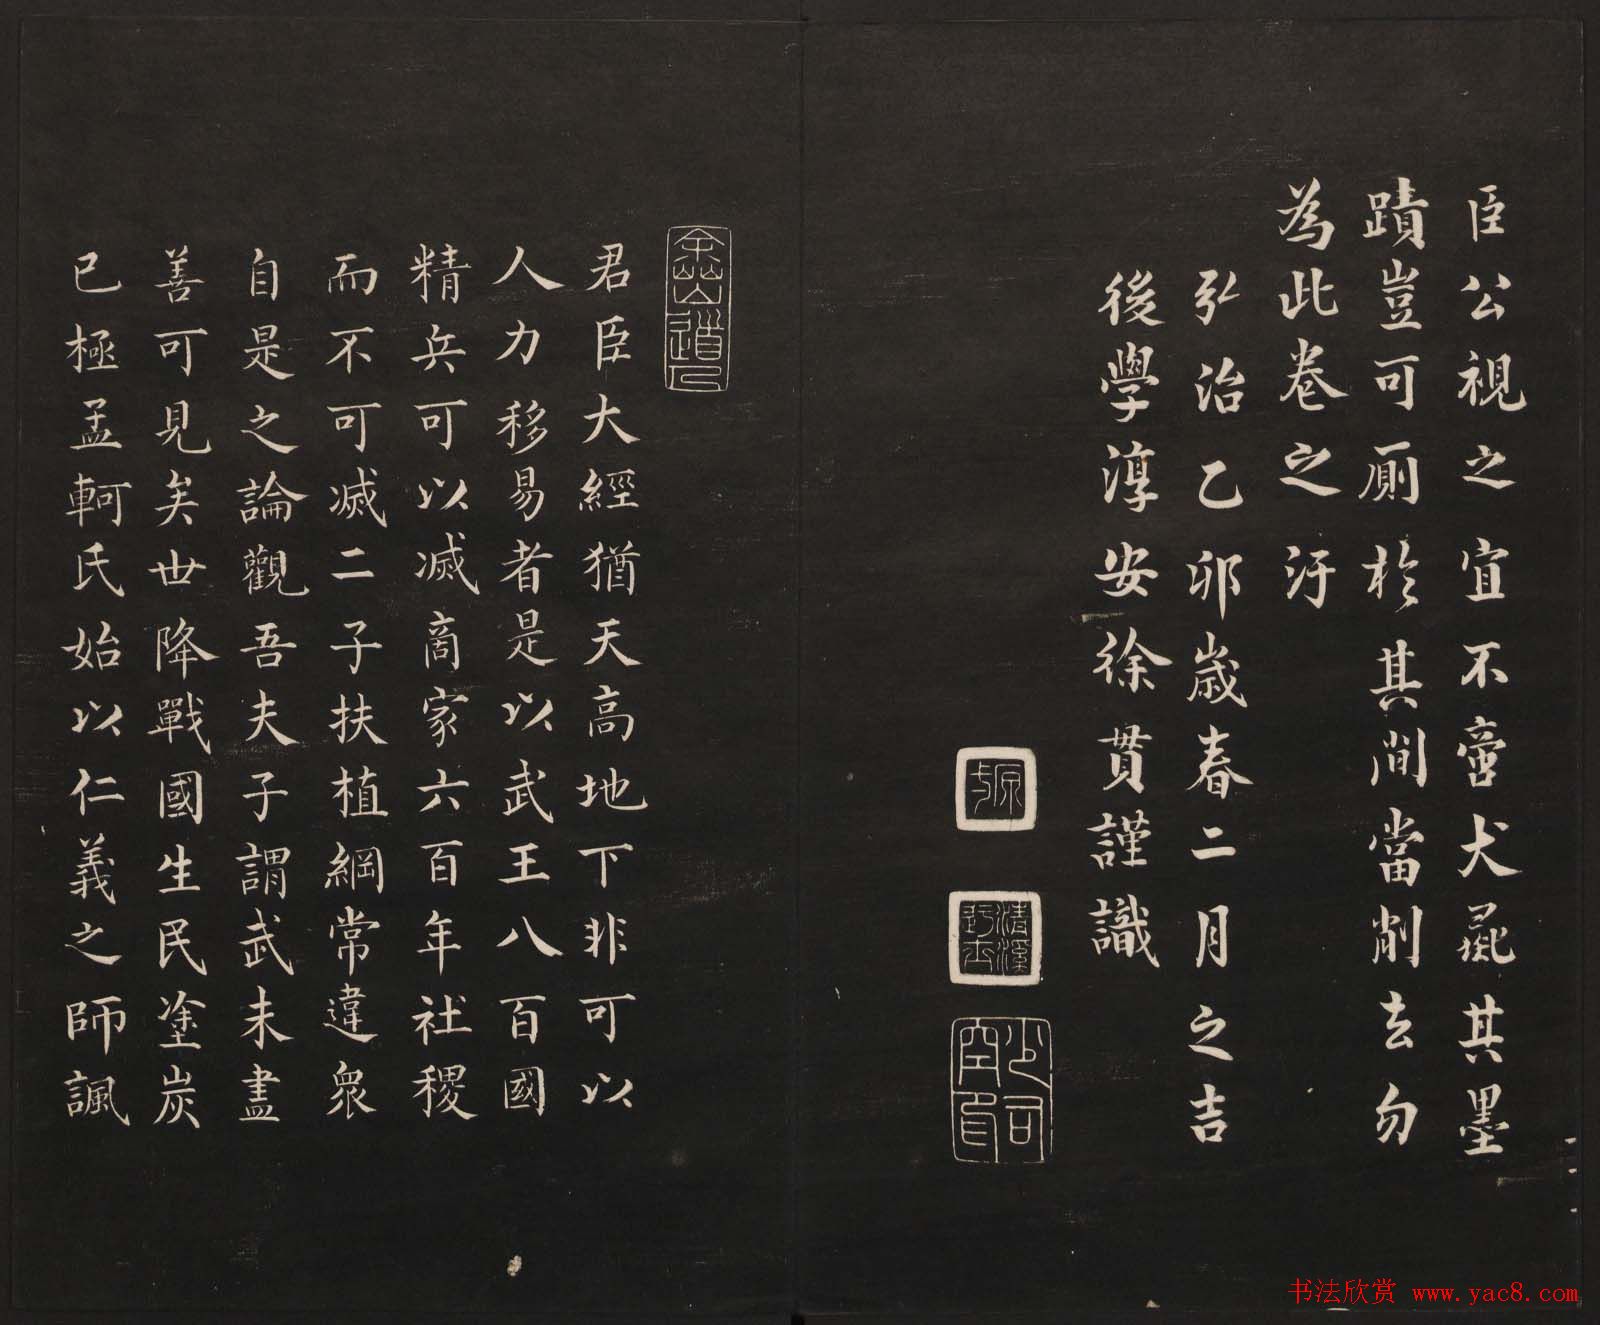 臣公視之宜不啻犬彘其墨
蹟豈可厠於其間當削去勿
為此卷之汙
弘治乙卯歲春二月之吉
後學淳安徐貫謹識
原一
清溪
少司空印
余山道人
君臣大經猶天高地下非可以
人力移易者是以武王八百國
精兵可以滅商家六百年社稷
而不可滅二子扶植綱常違衆
自是之論觀吾夫子謂武未盡
善可見矣世降戰國生民塗炭
已極孟軻氏始以仁義之師諷
书法欣赏 www.yac8.com